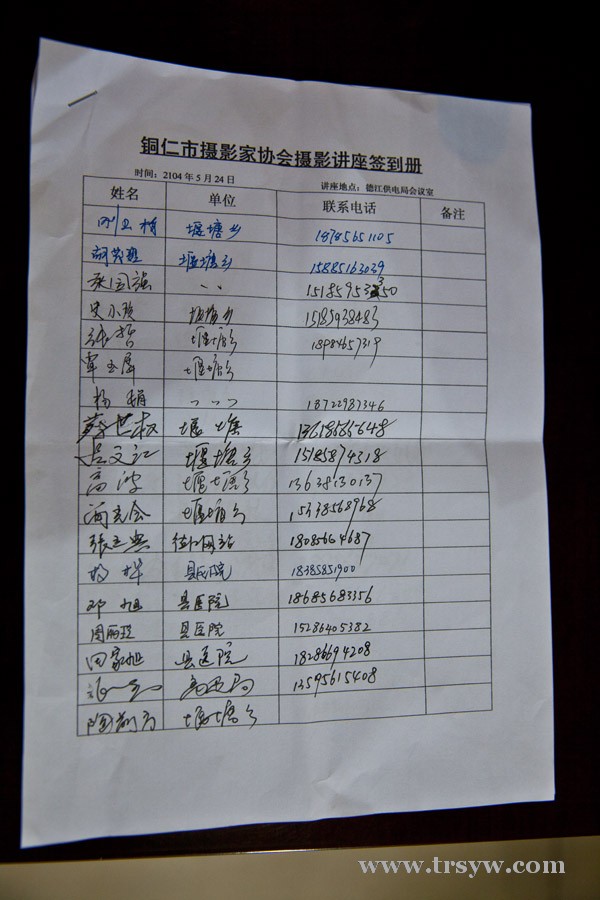 铜仁市摄影家协会摄影讲座签到册
时间：2104年5月24日 讲座地点：德江供电局会议室
姓名 单位 联系电话 备注
堰塘乡 18785651105
堰塘乡 15885163039
、、
史小玲 堰塘乡 15185938483
张哲 堰塘乡 18984657319
覃玉屏 堰塘乡
杨娟 、、、 18722987346
蔡世权 堰塘 13618565648
吴文江 堰塘乡 15185874318
高波 堰塘乡 13638130137
堰塘乡 15338568968
张 网站 18085664687
杨桦 县医院 18385851900
邓旭 县医院 18685683356
周丽琼 县医院 15286405382
田家旭 县医院 18286694208
13595615408
堰塘乡
www.trsyw.com